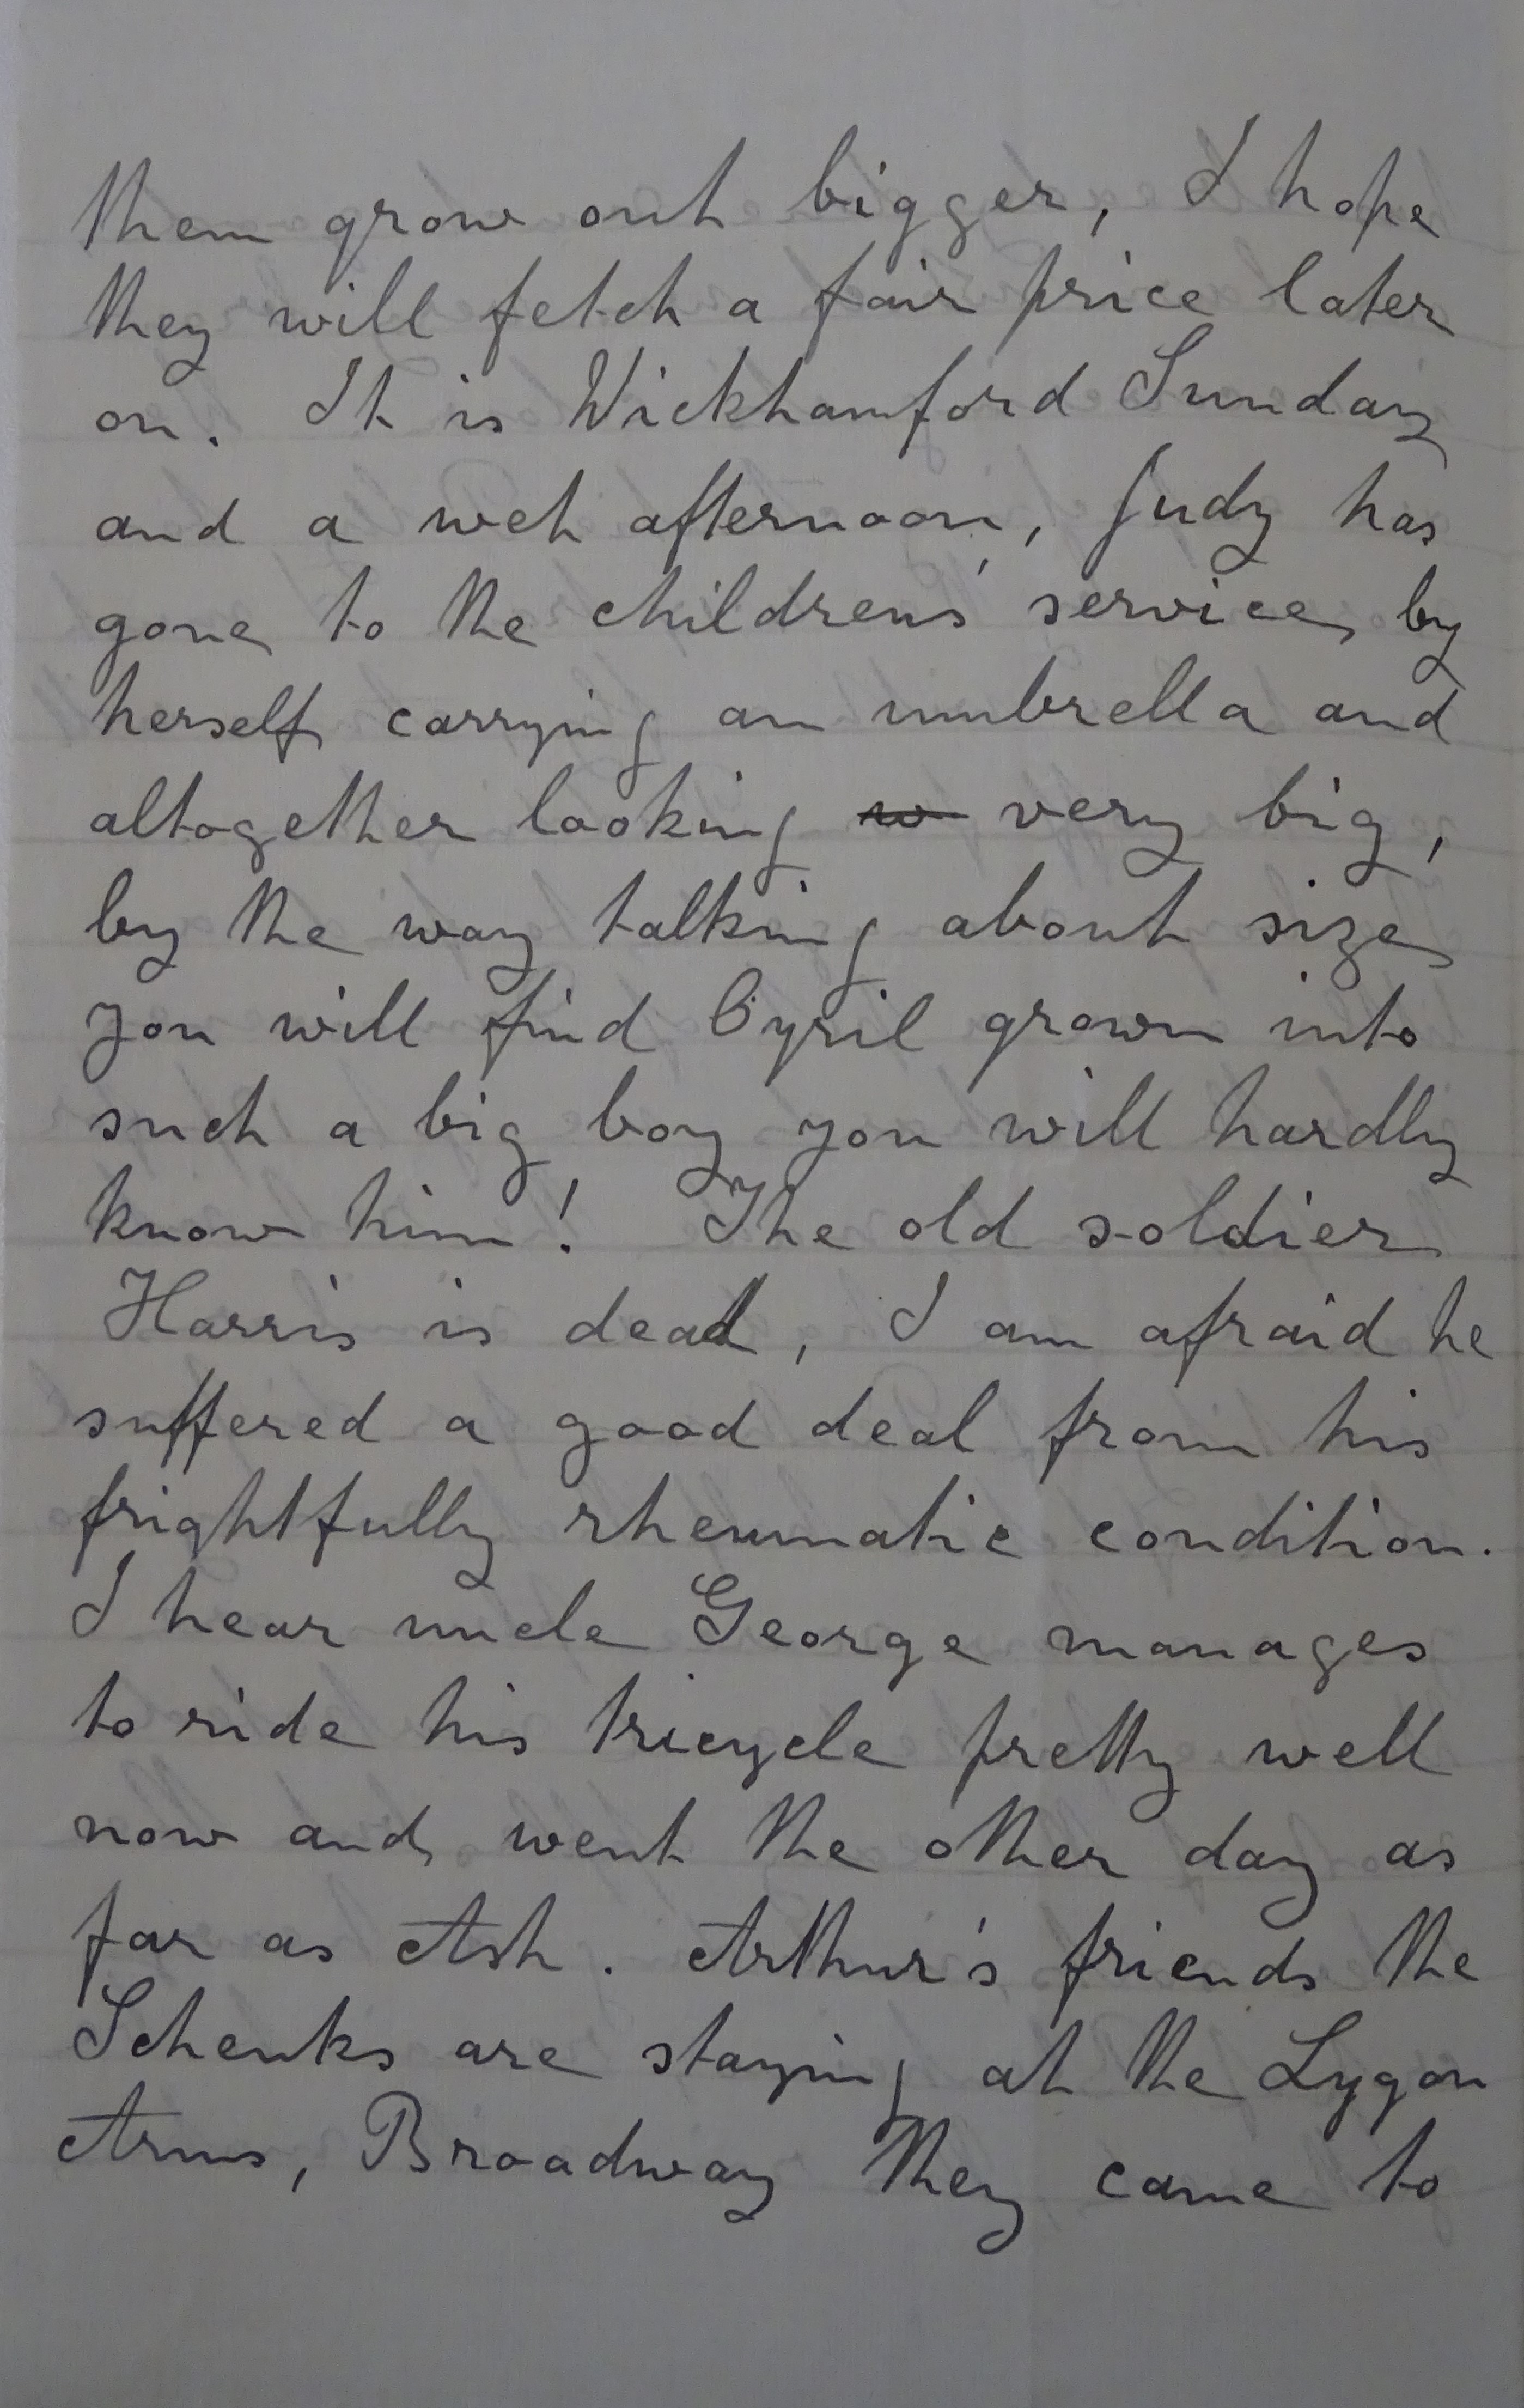 them grow out bigger, I hope
they will fetch a fair price later
on. It is Wickhamford Sunday
and a wet afternoon, Judy has
gone to the childrens' service by
herself carrying an umbrella and
altogether looking w very big,
by the way talking about size
you will find Cyril grown into
such a big boy you will hardly
know him! The old soldier
Harris is dead, I am afraid he
suffered a good deal from his
frightfully rheumatic condition.
I hear uncle George manages
to ride his tricycle pretty well
now and went the other day as
far as Ash. Arthur's friends the
Schenks are staying at the Lygon
Arms, Broadway they came to